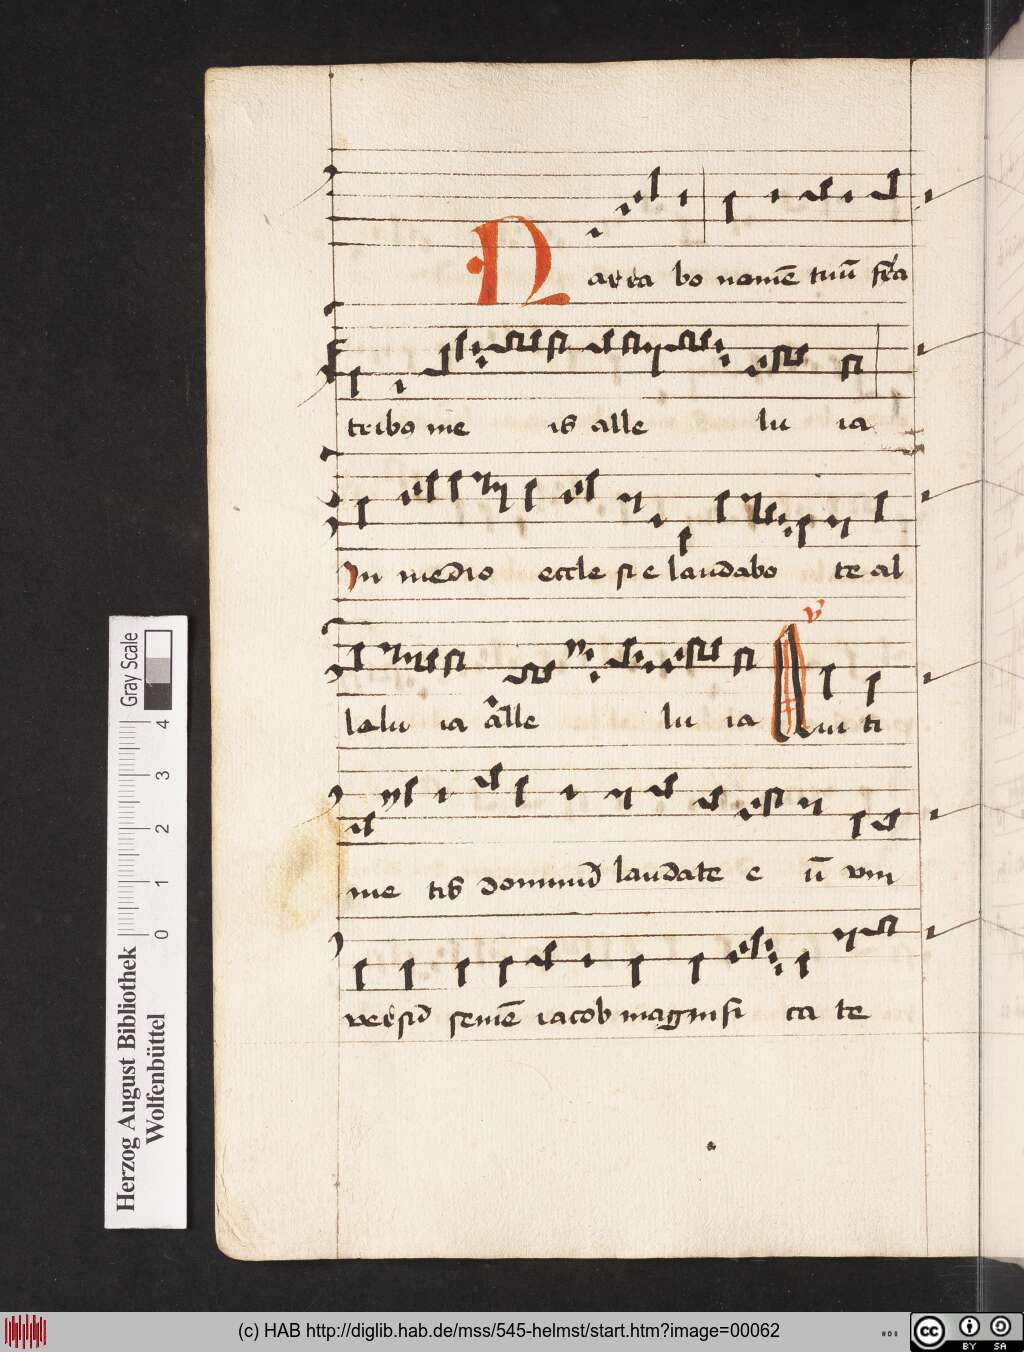 Narra bo nomē tuū fr̄a
tribo me is alle lu ia
In medio eccle sie laudabo te al
lelu ia alle lu ia
℣
Qui ti
me tis dominū laudate e ū vni
versū semē iacob magnifi ca te
Gray Scale
0 1 2 3 4
Herzog August Bibliothek
Wolfenbüttel
(c) HAB http://diglib.hab.de/mss/545-helmst/start.htm?image=00062
cc BY SA